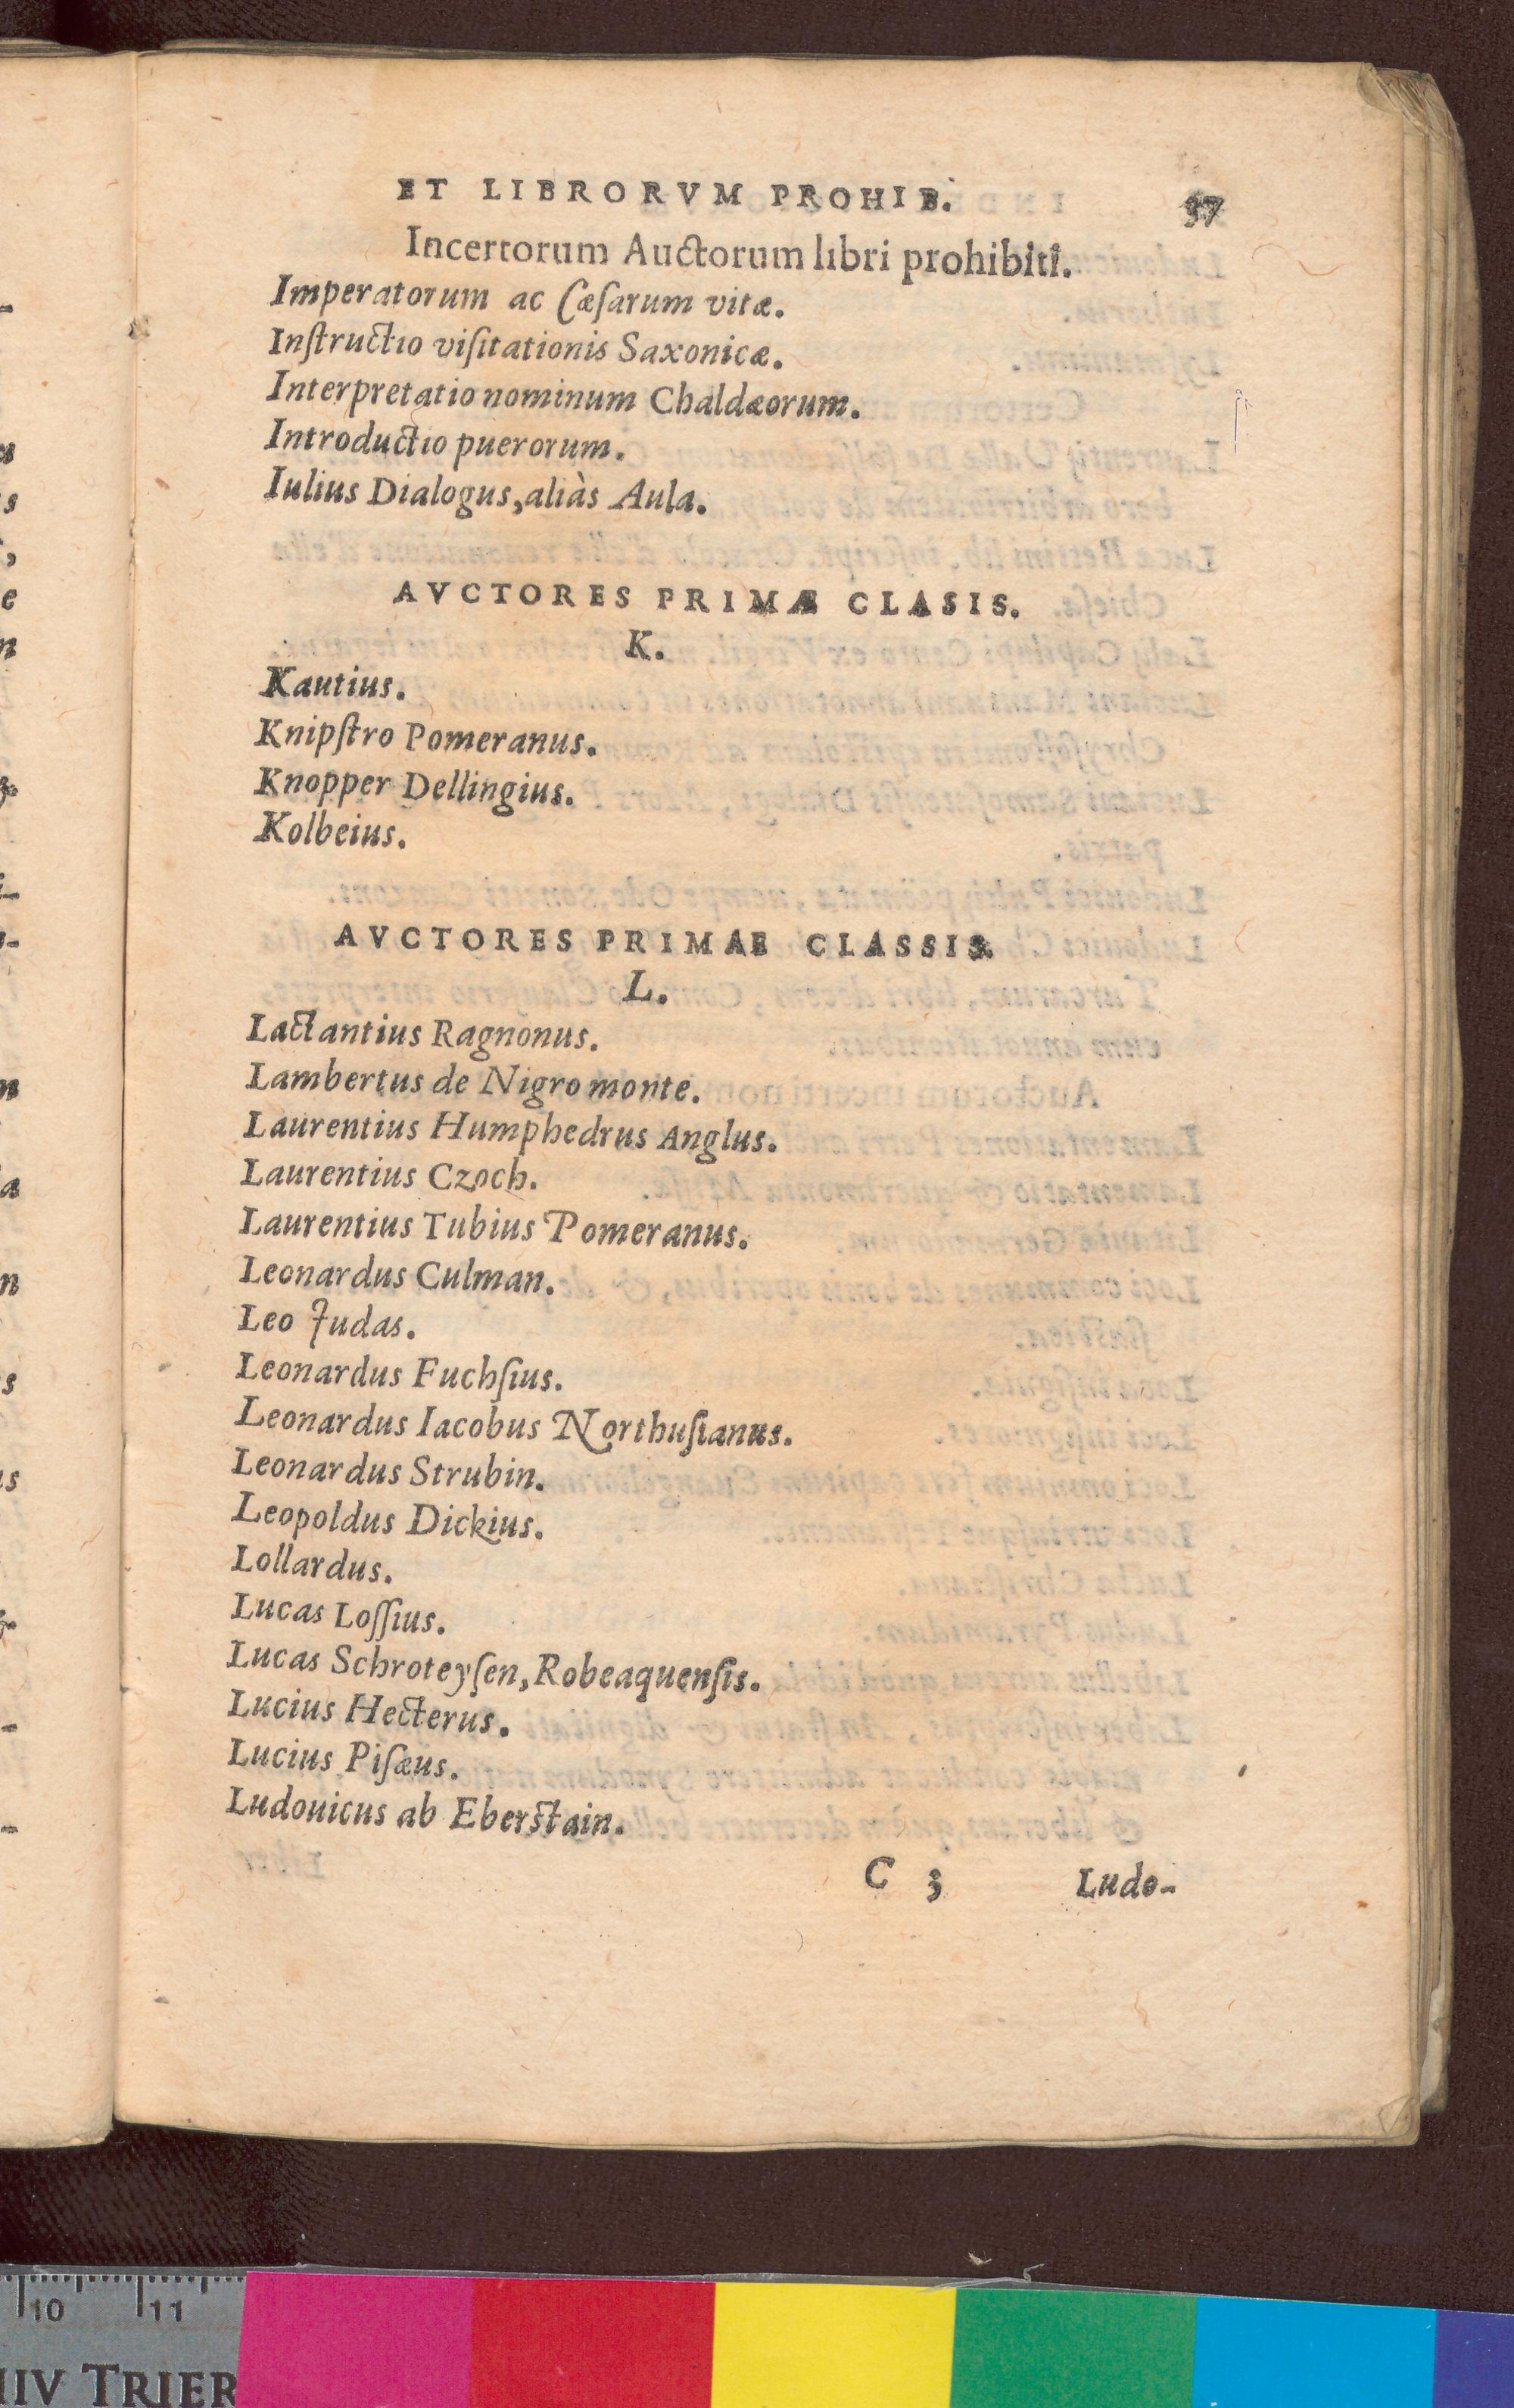 ET LIBRORVM PROHIB. 37
Incertorum Auctorum libri prohibiti.
Imperatorum ac Cæſarum vitæ.
Inſtructio viſitationis Saxonicæ.
Interpretatio nominum Chaldæorum.
Introductio puerorum.
Iulius Dialogus, aliàs Aula.
AVCTORES PRIMÆ CLASIS.
K.
Kautius.
Knipſtro Pomeranus.
Knopper Dellingius.
Kolbeius.
AVCTORES PRIMAE CLASSIS.
L.
Lactantius Ragnonus.
Lambertus de Nigro monte.
Laurentius Humphedrus Anglus.
Laurentius Czoch.
Laurentius Tubius Pomeranus.
Leonardus Culman.
Leo Judas.
Leonardus Fuchſius.
Leonardus Iacobus Northuſianus.
Leonardus Strubin.
Leopoldus Dickius.
Lollardus.
Lucas Loſſius.
Lucas Schroteyſen, Robeaquenſis.
Lucius Hecterus.
Lucius Piſæus.
Ludouicus ab Eberſtain.
C 3 Ludo-
10 11
TRIER